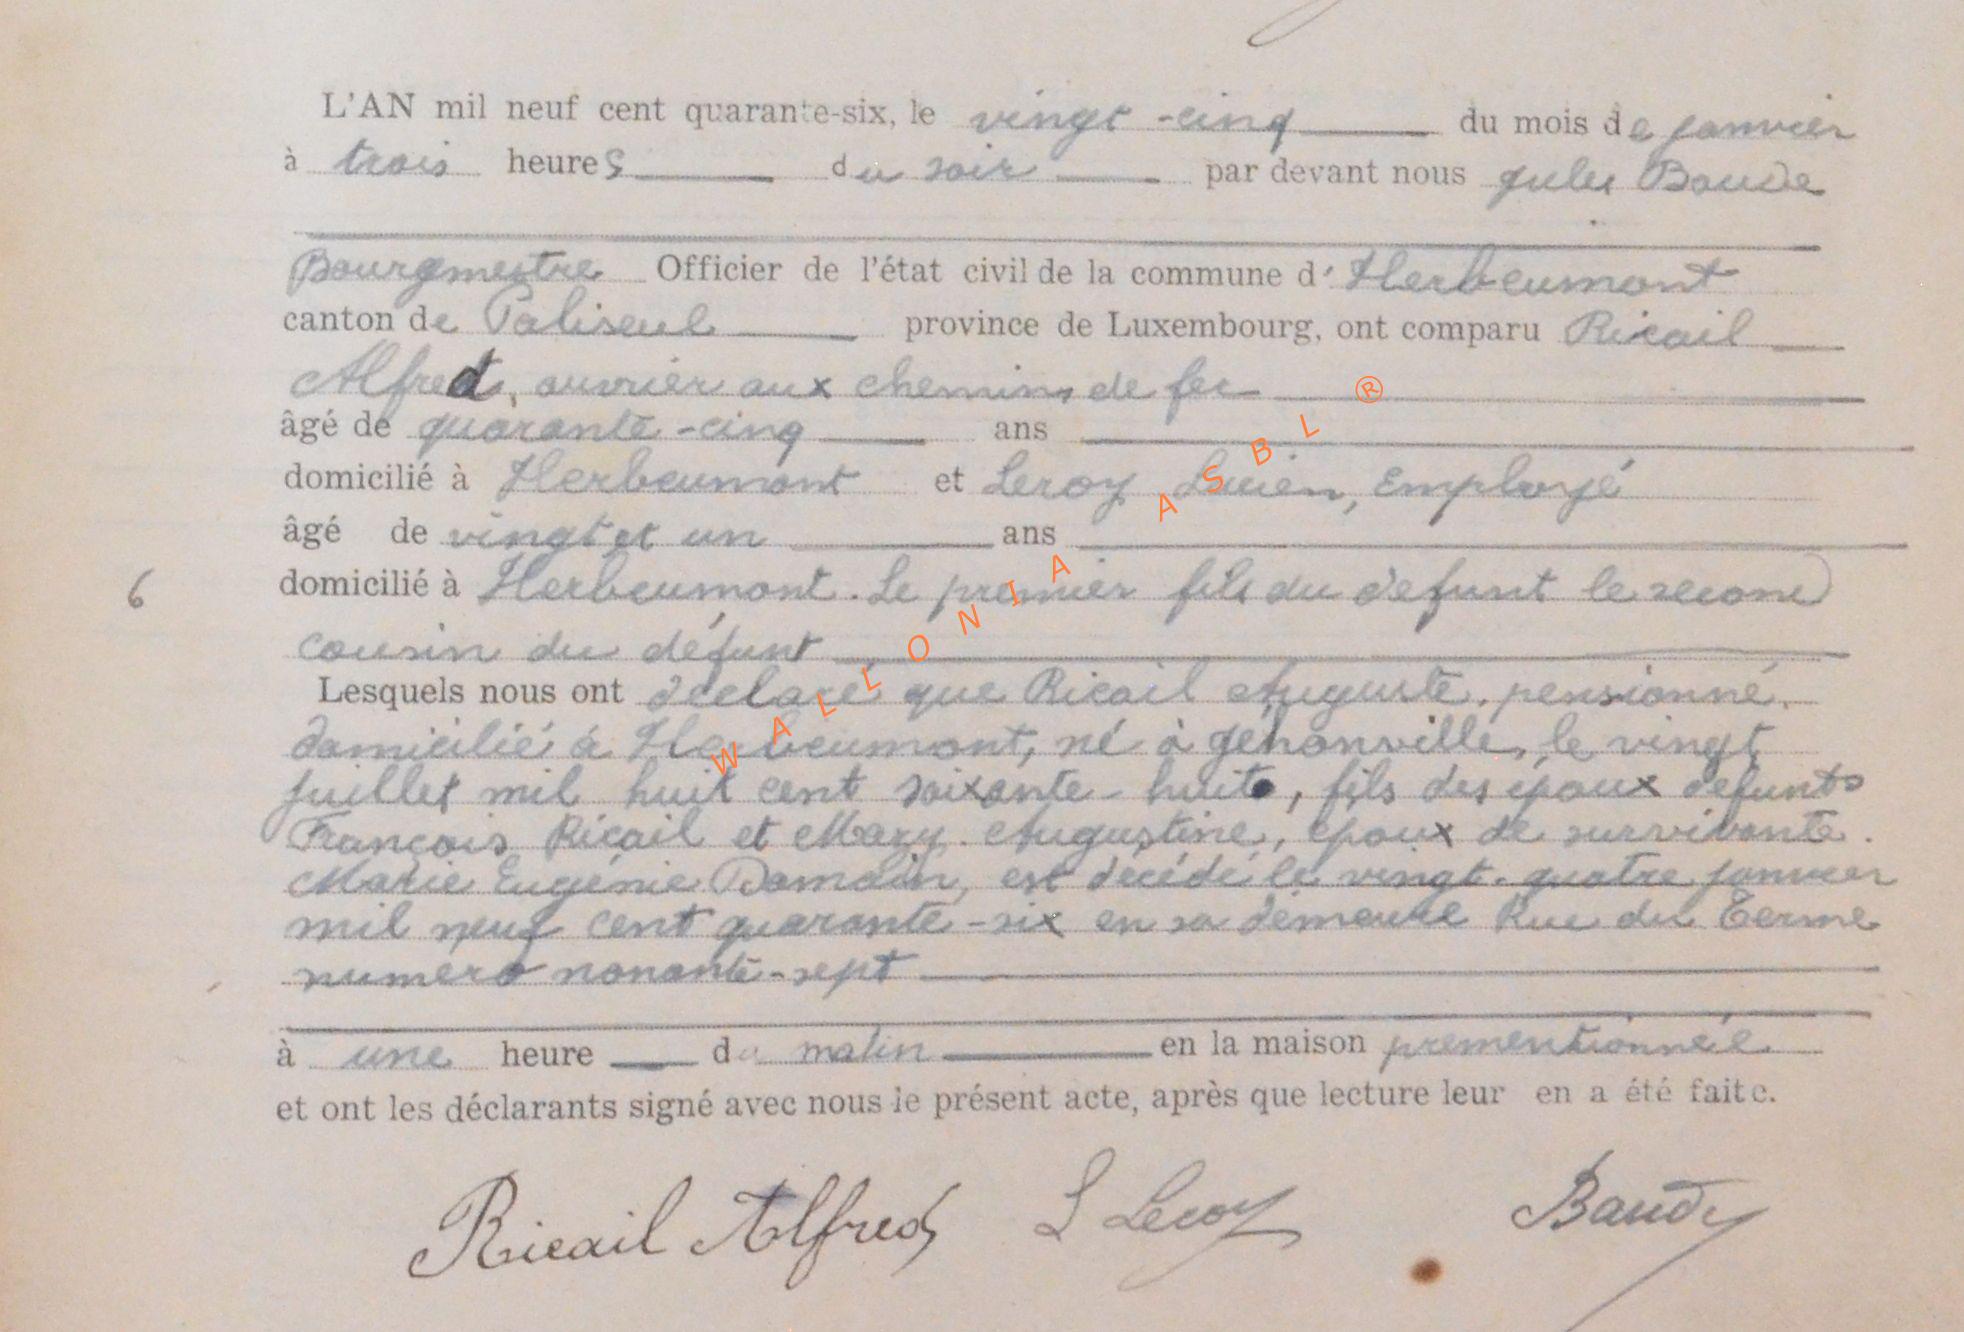 L'AN mil neuf cent quarante-six, le vingt-cinq du mois de janvier
à trois heures du soir par devant nous Jules Baude
Bourgmestre Officier de l'état civil de la commune d'Herbeumont
canton de Paliseul province de Luxembourg, ont comparu Ricail
Alfred, ouvrier aux chemins de fer
âgé de quarante-cinq ans
domicilié à Herbeumont et Leroy Lucien, Employé
âgé de vingt et un ans
6 domicilié à Herbeumont. Le premier fils du défunt le second
cousin du défunt
Lesquels nous ont déclaré que Ricail Auguste, pensionné,
domicilié à Herbeumont, né à Génonville, le vingt
juillet mil huit cent soixante-huit, fils des époux défunts
François Ricail et Mary Augustine, époux de survivante
Marie Eugénie Damain, est décédé le vingt-quatre janvier
mil neuf cent quarante-six en sa demeure Rue du Terme
numéro nonante-sept
à une heure du matin en la maison prementionnée
et ont les déclarants signé avec nous le présent acte, après que lecture leur en a été faite.
Ricail Alfred L Leroy Baude
WALLONIA ASBL ®